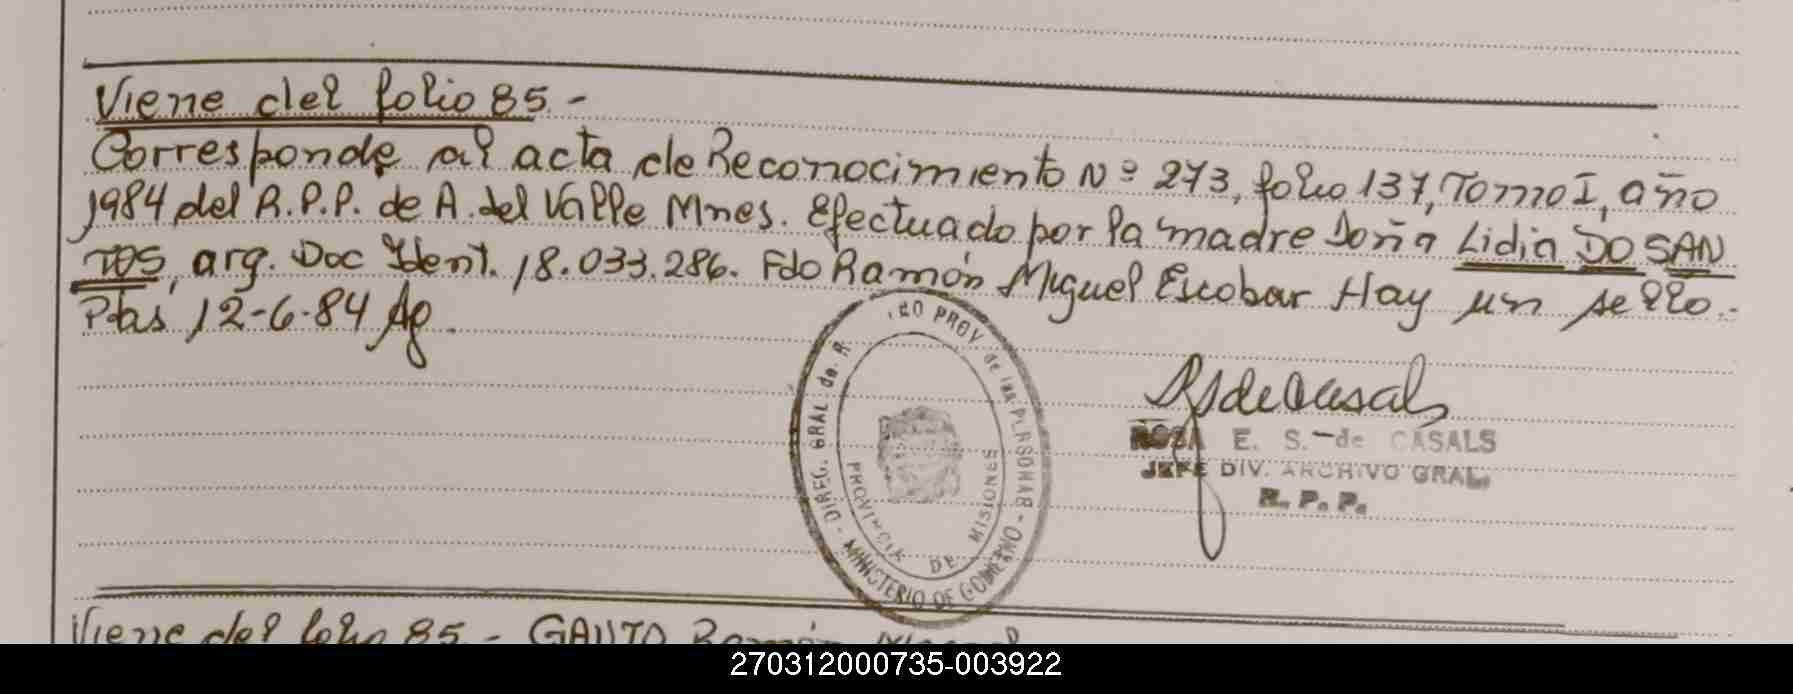 Viene del folio 85.-
Corresponde al acta de Reconocimiento Nº 273, folio 137, Tomo I, año
1984 del R.P.P. de A. del Valle Mnes. Efectuado por la madre Doña Lidia DO SAN
TOS, arg. Doc Ident. 18.033.286. Fdo Ramón Miguel Escobar Hay un sello.-
Pdas 12-6-84 Ag.
RsdeCasals
ROSA E. S. de CASALS
JEFE DIV. ARCHIVO GRAL.
R. P. P.
DIREC. GRAL de R PROV de las PERSONAS - MINISTERIO DE GOBIERNO -
PROVINCIA DE MISIONES
Viene del folio 85.- GAUTO Ramón Miguel
270312000735-003922